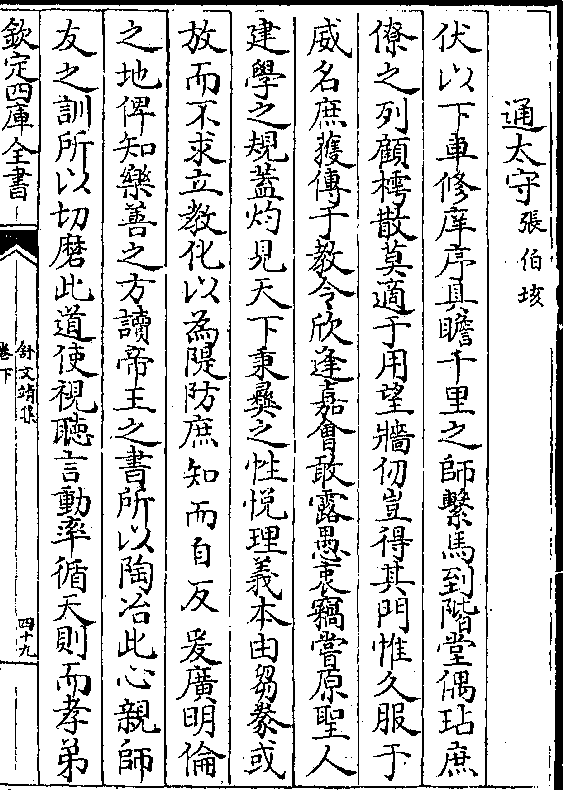 通太守張伯垓
伏以下車修庠序具瞻千里之師繫馬到階堂偶玷庶
僚之列顧樗散莫適于用望牆仞豈得其門惟久服于
威名庶獲傳于教令欣逢嘉會敢露愚衷竊嘗原聖人
建學之規蓋灼見天下秉彞之性悅理義本由芻豢或
放而不求立教化以為隄防庶知而自反爰廣明倫
之地俾知樂善之方讀帝王之書所以陶冶此心親師
友之訓所以切磨此道使視聽言動率循天則而孝弟
欽定四庫全書
舒文靖集
卷下
四十九